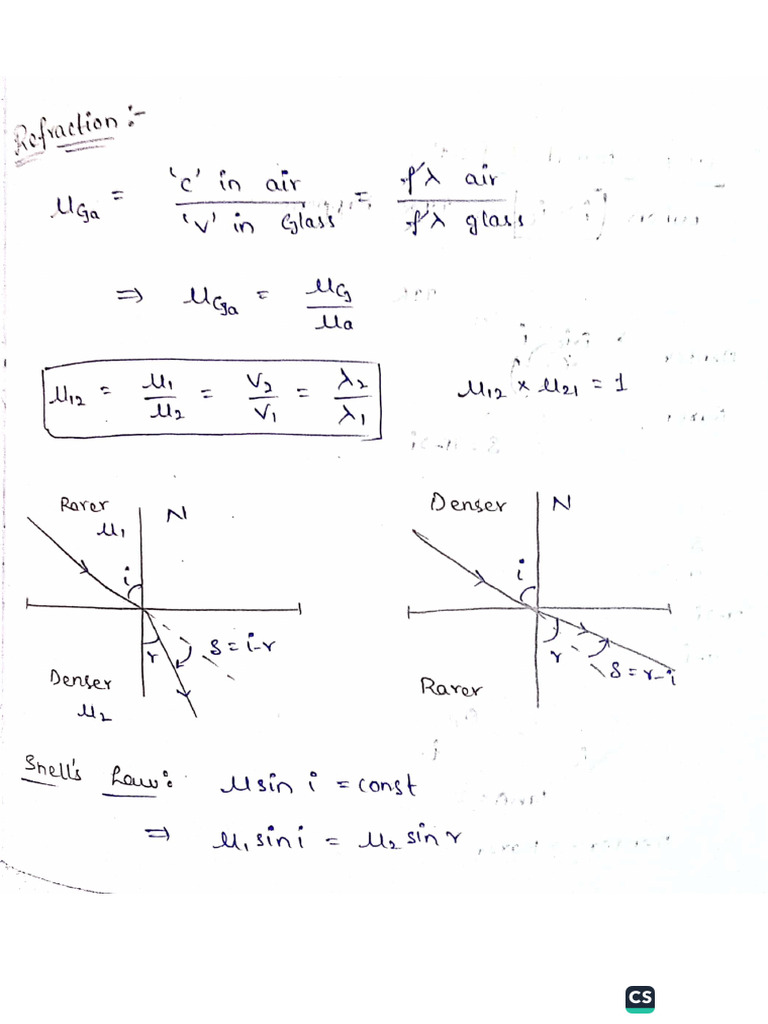 Refraction :-
μGa = 'c' in air / 'v' in Glass = fλ air / fλ glass
⇒ μGa = μG / μa
μ12 = μ1 / μ2 = V2 / V1 = λ2 / λ1
μ12 × μ21 = 1
Rarer
μ1
N
i
r
δ = i-r
Denser
μ2
Denser
N
i
r
δ = r-i
Rarer
Snell's Law: μ sin i = const
⇒ μ1 sin i = μ2 sin r
CS